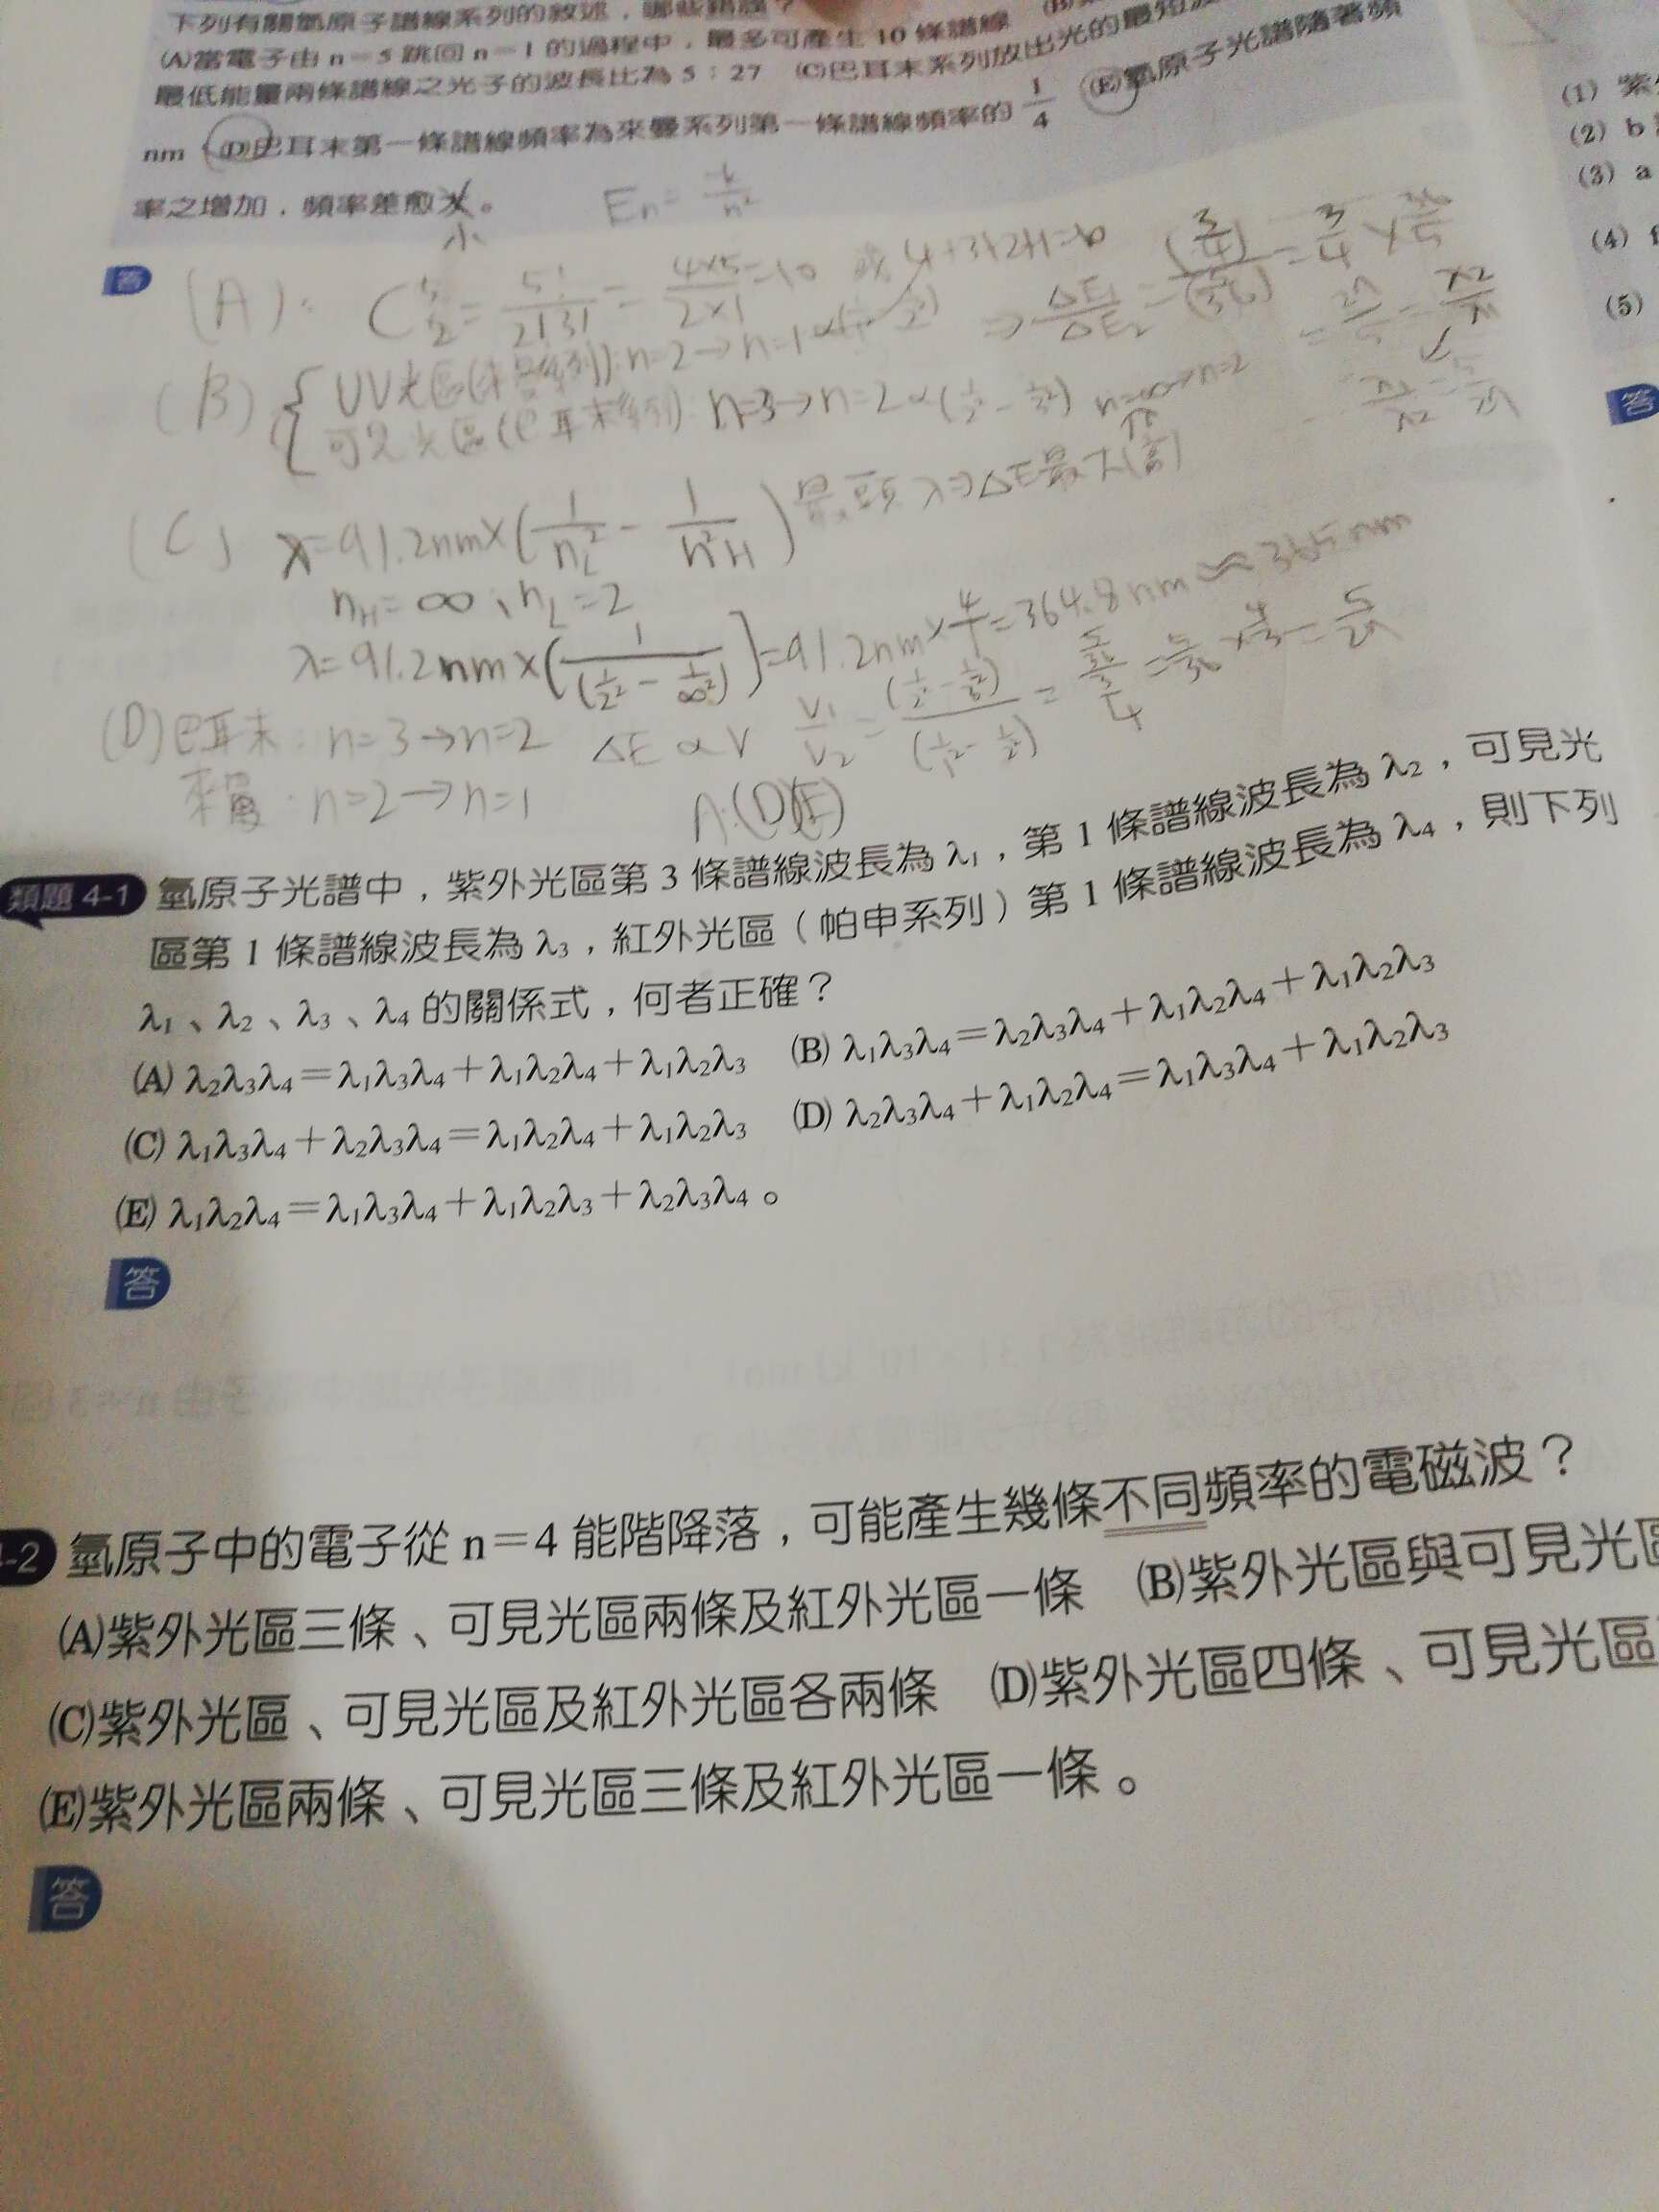 下列有關氫原子譜線系列的敘述,哪些錯誤?
(A)當電子由 n=5 跳回 n=1 的過程中,最多可產生 10 條譜線 (B)
最低能量兩條譜線之光子的波長比為 5:27 (C)巴耳末系列放出光的最短波
nm (D)巴耳末第一條譜線頻率為來曼系列第一條譜線頻率的 1/4 (E)氫原子光譜隨著頻
率之增加,頻率差愈大。
小
En= -k/n²
答
(A): C⁵₂= 5!/2!3! = 4×5/2×1 =10 或 4+3+2+1=10
(B) { UV光區(來曼系列): n=2→n=1 ∝(1/1²-1/2²) ⇒ ΔE1/ΔE2 = (3/4)/(5/36) = 3/4 × 36/5
可見光區(巴耳末系列): n=3→n=2 ∝(1/2²-1/3²) n=∞→n=2 = 27/5 = λ2/λ1
(C) λ=91.2nm×(1/nL² - 1/n²H) 最短λ⇒ΔE最大(高)
nH=∞、nL=2
λ=91.2nm×(1/(1/2²-1/∞²))=91.2nm×4/1=364.8nm≈365nm
(D)巴耳末:n=3→n=2 ΔE∝ν ν1/ν2 = (1/2²-1/3²)/(1/1²-1/2²) = (5/36)/(3/4) = 5/36 × 4/3 = 5/27
來曼:n=2→n=1 A:(D)(E)
類題 4-1 氫原子光譜中,紫外光區第 3 條譜線波長為 λ₁,第 1 條譜線波長為 λ₂,可見光
區第 1 條譜線波長為 λ₃,紅外光區(帕申系列)第 1 條譜線波長為 λ₄,則下列
λ₁、λ₂、λ₃、λ₄ 的關係式,何者正確?
(A) λ₂λ₃λ₄=λ₁λ₃λ₄+λ₁λ₂λ₄+λ₁λ₂λ₃ (B) λ₁λ₃λ₄=λ₂λ₃λ₄+λ₁λ₂λ₄+λ₁λ₂λ₃
(C) λ₁λ₃λ₄+λ₂λ₃λ₄=λ₁λ₂λ₄+λ₁λ₂λ₃ (D) λ₂λ₃λ₄+λ₁λ₂λ₄=λ₁λ₃λ₄+λ₁λ₂λ₃
(E) λ₁λ₂λ₄=λ₁λ₃λ₄+λ₁λ₂λ₃+λ₂λ₃λ₄。
答
-2 氫原子中的電子從 n=4 能階降落,可能產生幾條不同頻率的電磁波?
(A)紫外光區三條、可見光區兩條及紅外光區一條 (B)紫外光區與可見光區
(C)紫外光區、可見光區及紅外光區各兩條 (D)紫外光區四條、可見光區
(E)紫外光區兩條、可見光區三條及紅外光區一條。
答
(1) 紫
(2) b
(3) a
(4)
(5)
答